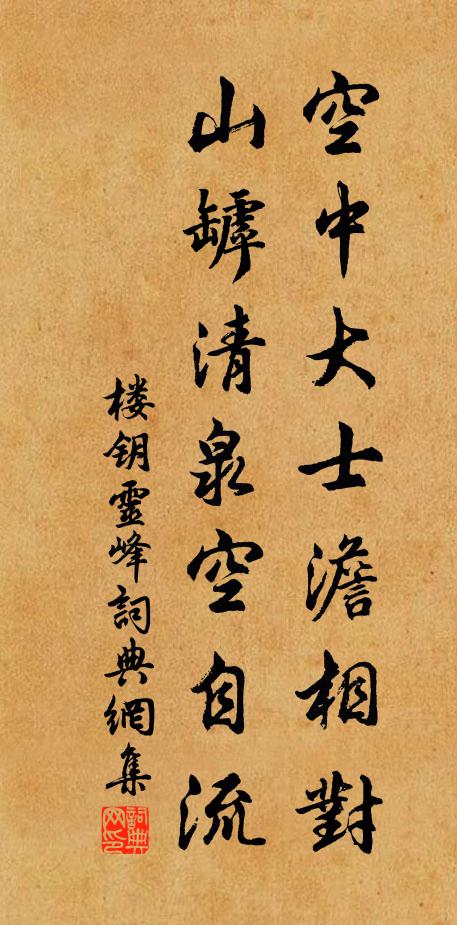 空中大士澹相對
山罅清泉空自流
楼钥靈峰詞典網集
詞典网印